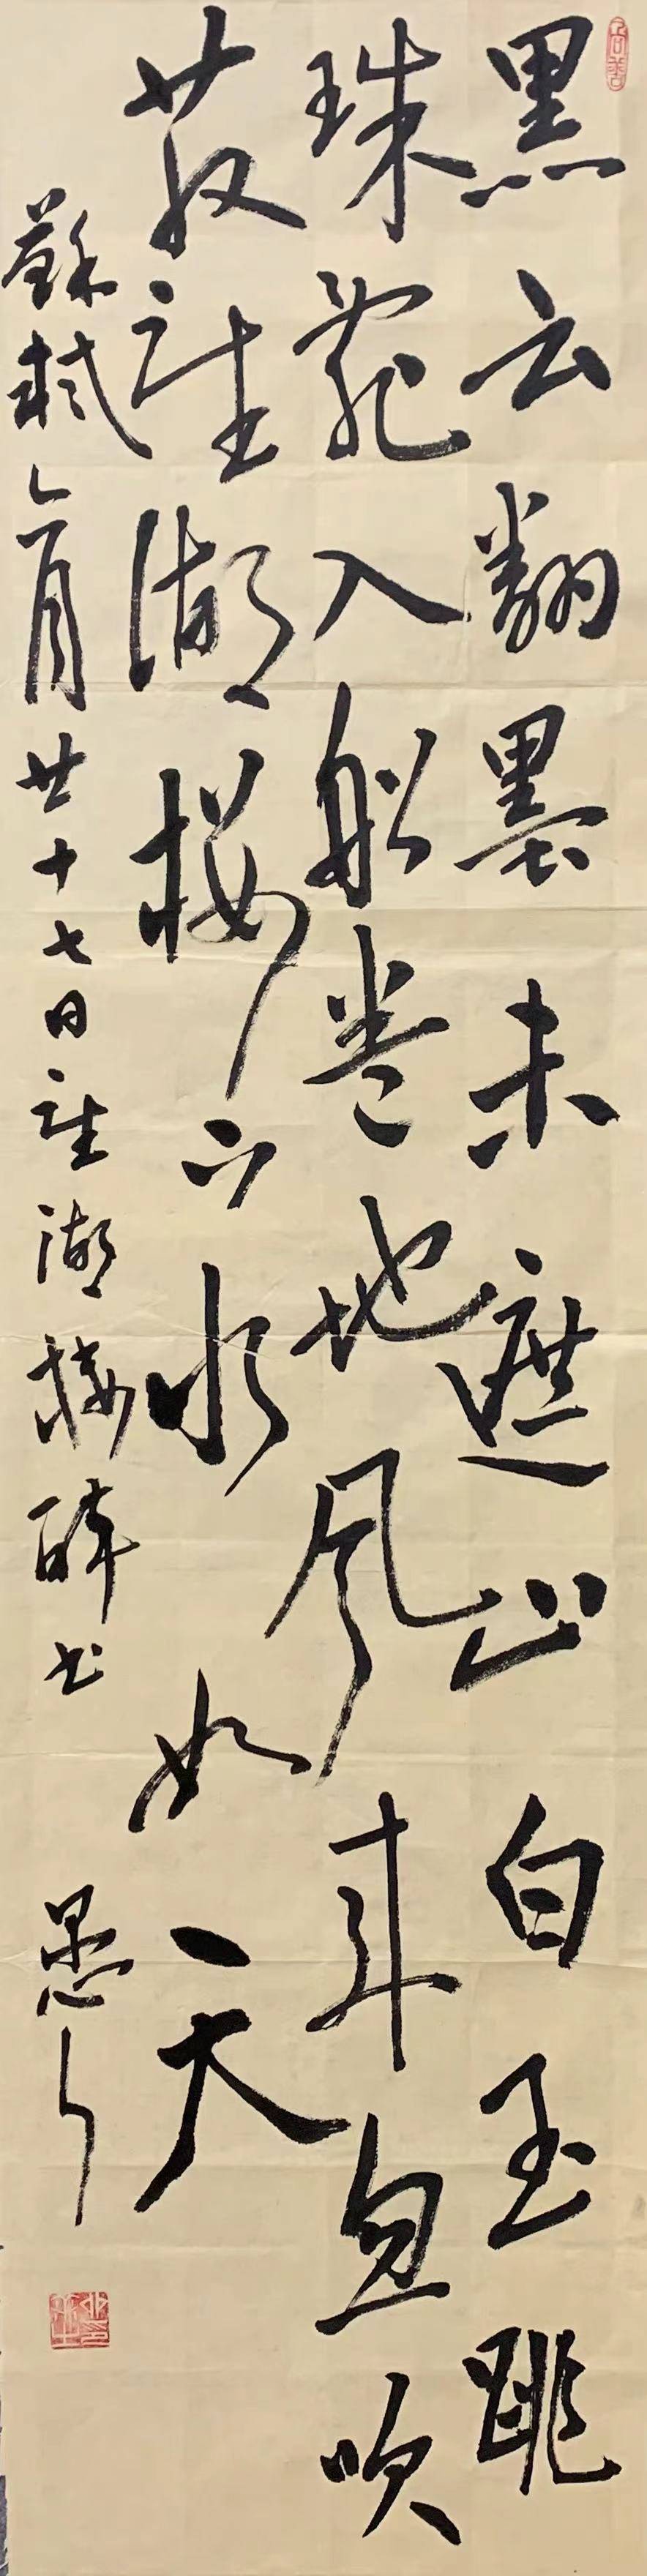 黑云翻墨未遮山白玉跳
珠亂入船卷地风来忽吹
散望湖楼下水如天
蘇軾六月廿十七日望湖楼醉书
愚